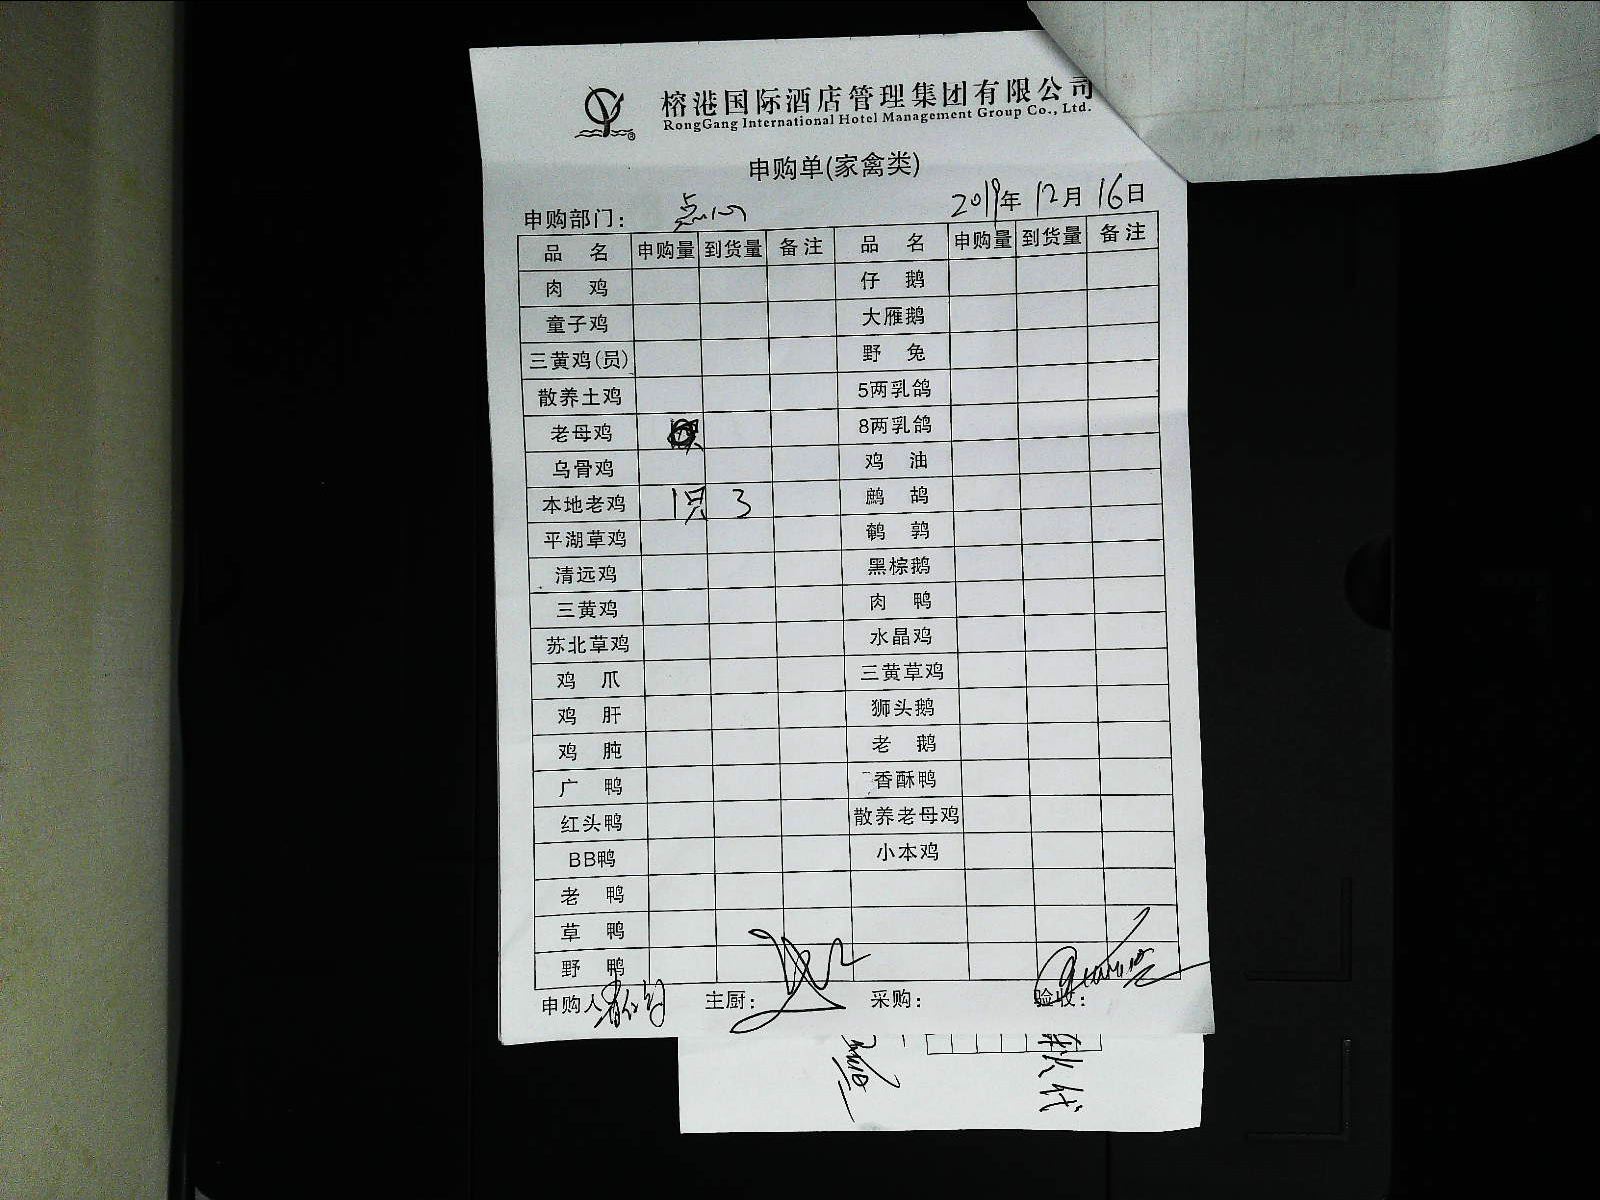 榕港国际酒店管理集团有限公司
RongGang International Hotel Management Group Co., Ltd.
申购单(家禽类)
申购部门： 点心 2019年 12月 16日
品 名 申购量 到货量 备注 品 名 申购量 到货量 备注
肉 鸡 仔 鹅
童子鸡 大雁鹅
三黄鸡(员) 野 兔
散养土鸡 5两乳鸽
老母鸡 8两乳鸽
乌骨鸡 鸡 油
本地老鸡 1只 3 鹧 鸪
平湖草鸡 鹌 鹑
清远鸡 黑棕鹅
三黄鸡 肉 鸭
苏北草鸡 水晶鸡
鸡 爪 三黄草鸡
鸡 肝 狮头鹅
鸡 肫 老 鹅
广 鸭 香酥鸭
红头鸭 散养老母鸡
BB鸭 小本鸡
老 鸭
草 鸭
野 鸭
申购人 主厨： 采购： 验收：